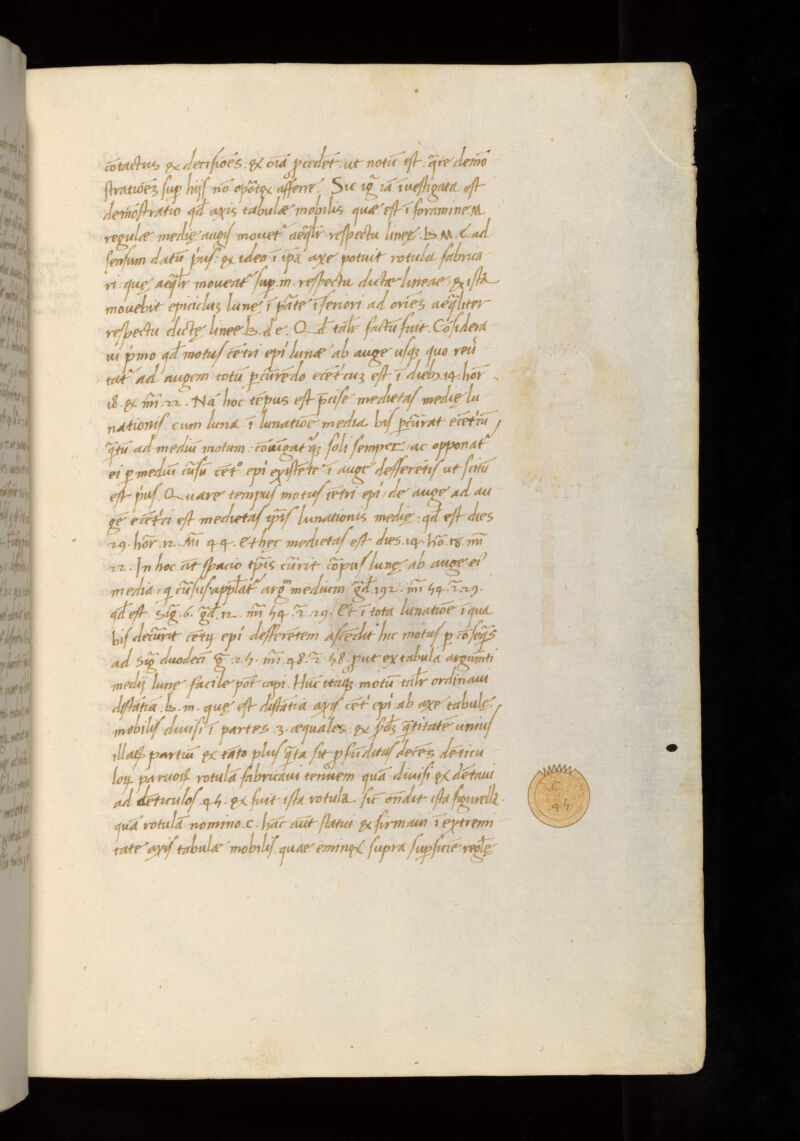 cōtactus et decisiōēs et oīa p̄cedēt. ut notū est. q̄re demō
stratiōēs sup̄ hijs nō opōꝫ afferre. Sic igr̃ iā īvestigata est
demōstratio qd̄ axis tabulæ mobilis quæ est ī foramine M
regulæ medię augis movetr̃ aeq̄lr̃ respectu lineę B.M.C. ad
sensum datū prĩus. et ideo ī ip̄a axe potuit rotula fabrica
ri quę aeq̄lr̃ moveatr̃ sup̄.m. respectu dictæ lineae et ista
movebit epiciclū lunę ī p̄te īferiori ad oriēs aeq̄liter
respectu dictę lineę b.d.e. Qd̄ talr̃ factū fuit. Cōsidera
vi prĩmo qd̄ motus cētri epĩ lunæ ab auge usqꝫ quo rev̄
tatr̃ ad augem totū p̄curēdo ecētꝰcū est ī dieb9 .14. hōr
18. et m̄ .22. Nā hoc tēpus est p̄cise medietas medię lu
nationis. cum luna ī lunatiōe media bis p̄currat ecētꝰcū
q̄tū ad mediū motum. cōiūgatr̃qꝫ soli semper. ac opponatr̃
ei p̄ mediū cursū cētꝰ epĩ existēte ī auge defferētis ut scitū
est prĩus. Quare tempus motus cētri epĩ de auge ad au
gē ecētꝰci est medietas tp̄is lunationis medię. qd̄ est dies
29. hōr .12. M̄ 44. Et hęc medietas est dies .14. hō. 18. m̄
22. In hoc aūt spacio tp̄is currit corpus lunę ab auge eĩ
media. qĩ cursus app̄llatr̃ argm̄ medium grd̄ 192. m̄ 54. 2̄ 29.
qd̄ est. sig̃. 6. grd̄ .12. m̄ 54. 2̄ 29. Et ī tota lunatiōe ī qua
bis decurrit cētrũ epĩ defferētem ascēdit hic motus p̄ cōseq̄s
ad sig̃ duodecī g̃ .25. m̄. 48. 2̄ 58. put ex tabula argumēti
medij lunę facile pōt capi. Hūc itaqꝫ motū talr̃ ordinavi
distātiā b.m. quę est distātia axis cētꝰ epĩ ab axe tabulę
mobilis divisi ī partes .3. æquales. et sc̄dꝫ q̄titatē unius
illaꝝ partiū et tāto plus q̄ta sit p̄fūditas decēs dēticu
loꝝ parvoꝝ rotulā fabricavi tenuem quā divisi et dētavi
ad dēticulos .45. et fuit ista rotula sic ōndit ista figurella.
quā rotulā nomino .c. hāc aūt statui et firmavi ī extremi
tate axis tabulæ mobilis. quae eminet supra sup̄ficiē reglę
C.
45.